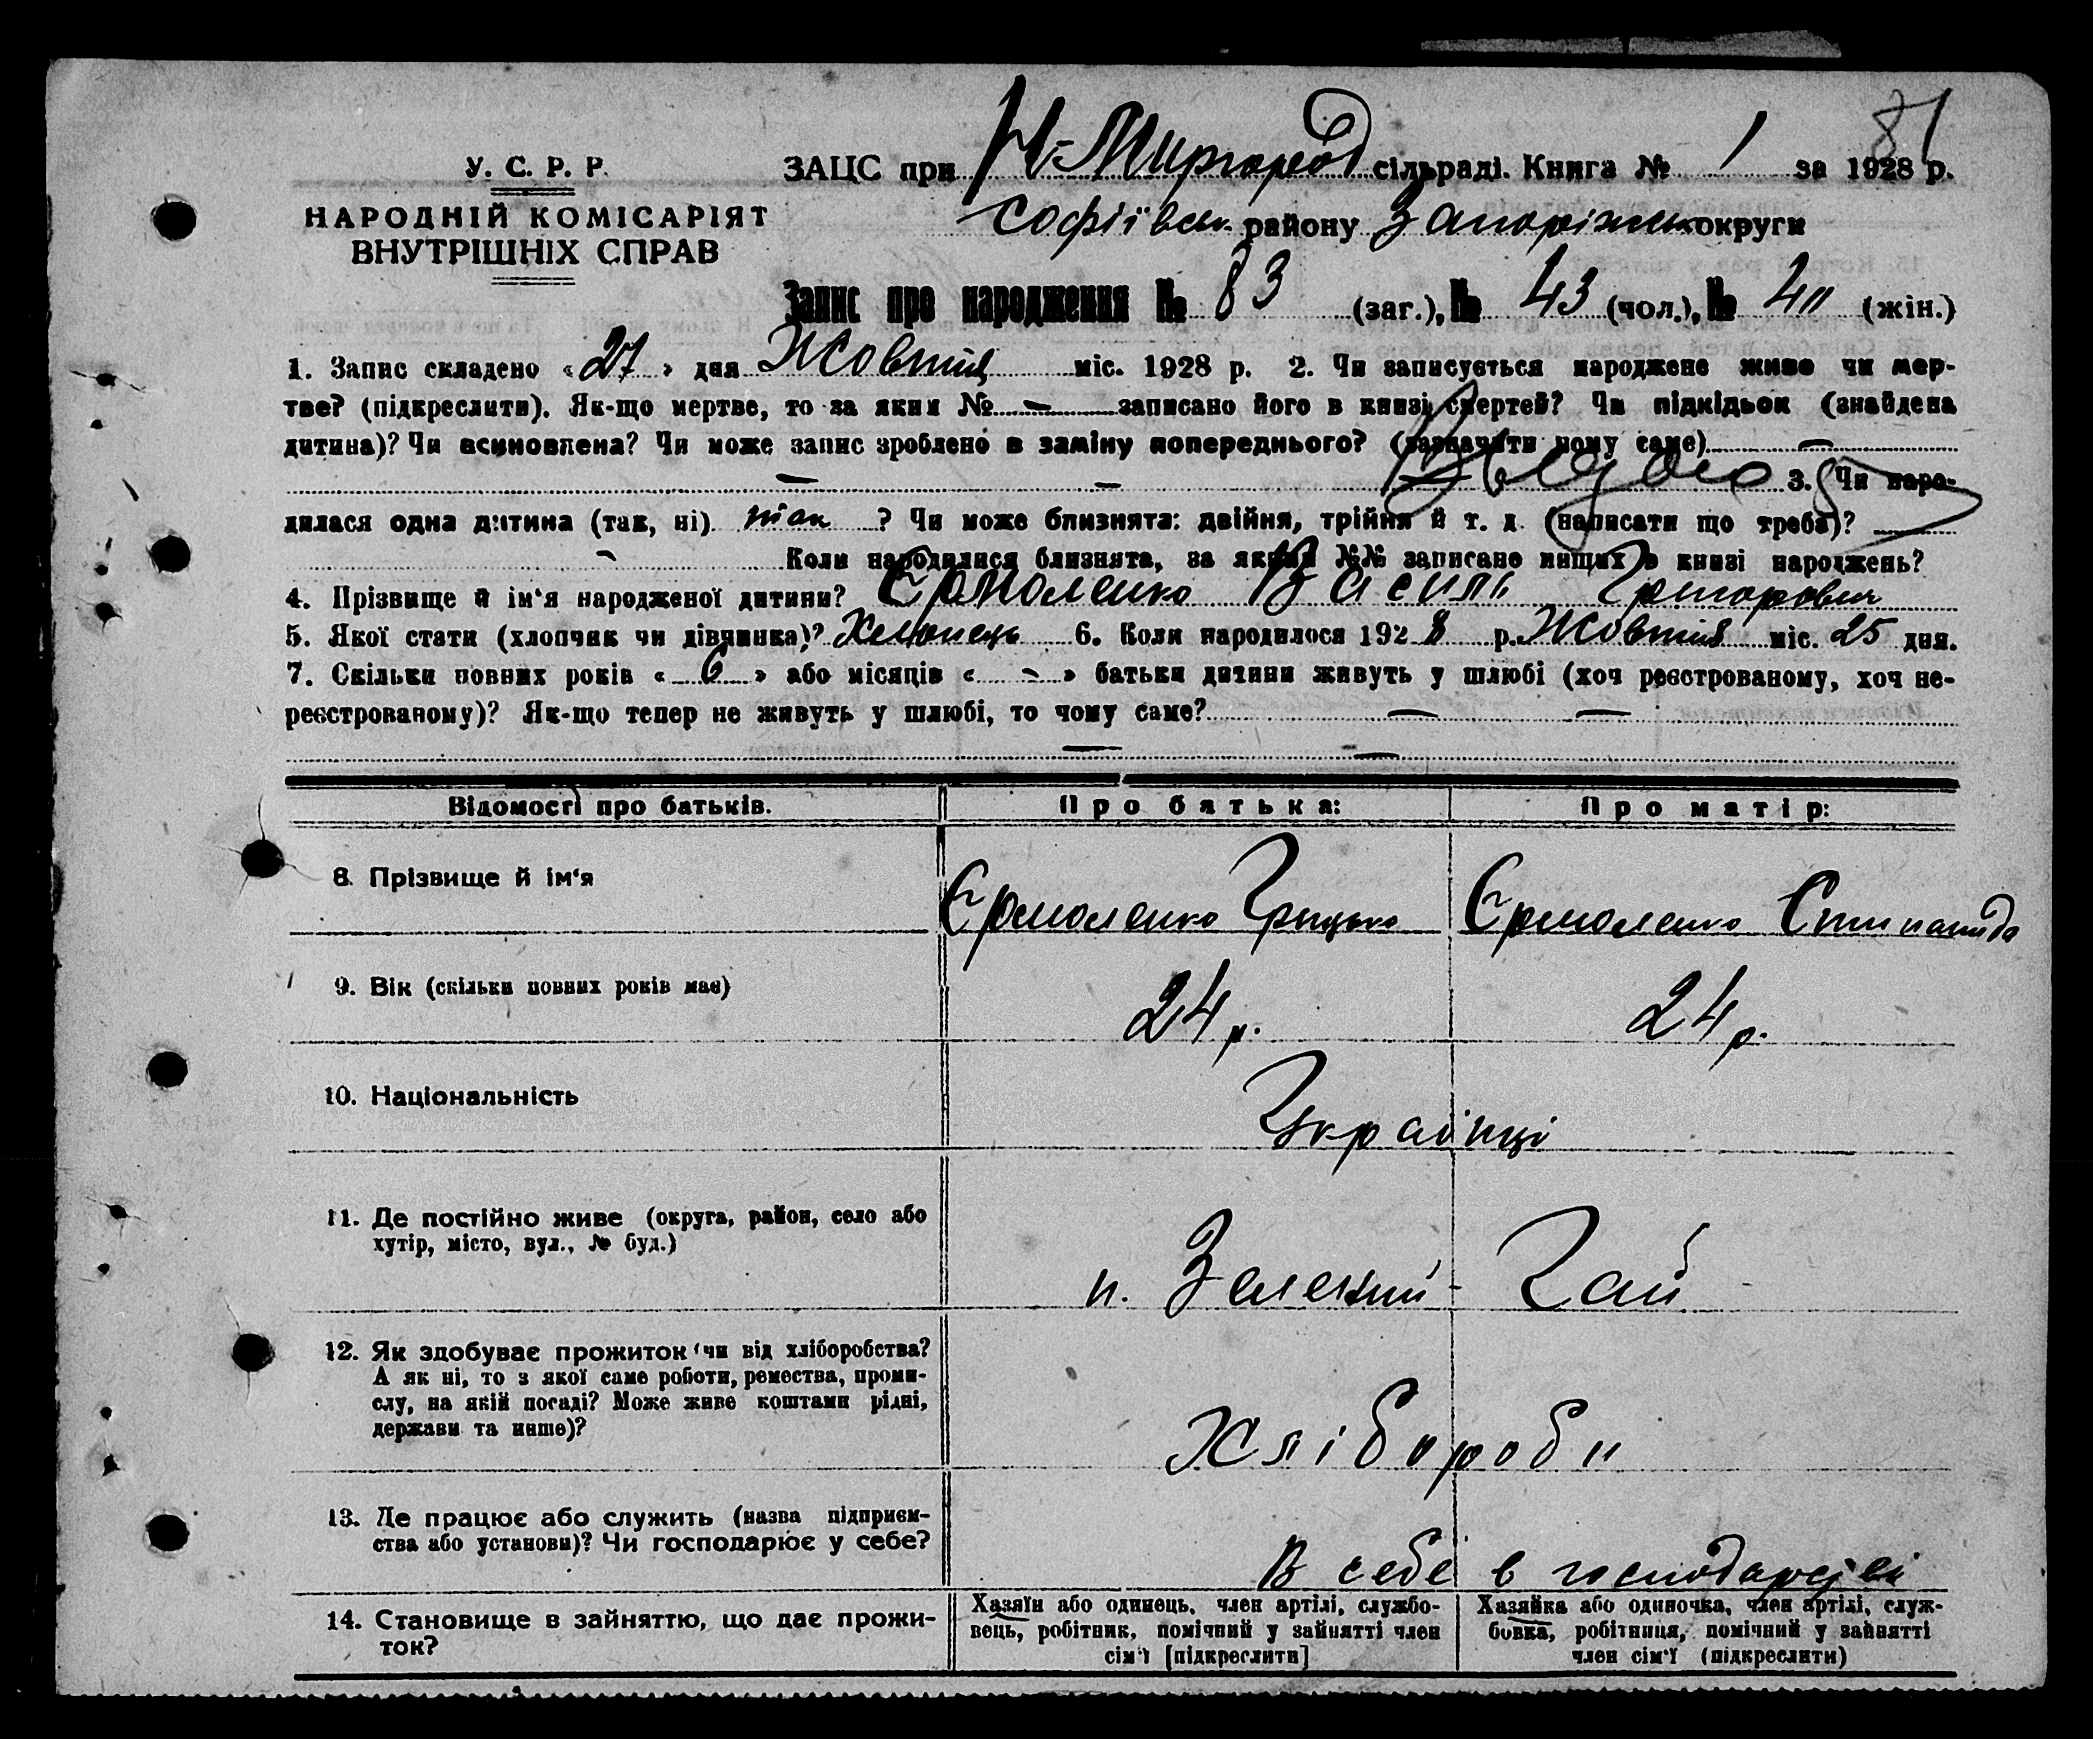 81
У. С. Р. Р.
НАРОДНІЙ КОМІСАРІЯТ
ВНУТРІШНІХ СПРАВ
ЗАЦС при Н-Миргород сільраді. Книга № 1 за 1928 р.
Софіївськ. району Запоріжськ округи
Запис про народження № 83 (заг.), № 43 (чол.), № 40 (жін.)
1. Запис складено «27» дня Жовтня міс. 1928 р. 2. Чи записується народжене живе чи мер-
тве? (підкреслити). Як-що мертве, то за яким № — записано його в книзі смертей? Чи підкідьок (знайдена
дитина)? Чи всиновлена? Чи може запис зроблено в заміну попереднього? (зазначити чому саме) —
— — 3. Чи наро-
дилася одна дитина (так, ні) так ? Чи може близнята: двійня, трійня й т. д. (написати що треба)?
- Коли народилися близнята, за якими №№ записано инших в книзі народжень?
4. Прізвище й ім'я народженої дитини? Єрмоленко Василь Григорович
5. Якої стати (хлопчик чи дівчинка)? Хлопець 6. Коли народилося 1928 р. Жовтня міс. 25 дня.
7. Скільки повних років «6» або місяців «-» батьки дитини живуть у шлюбі (хоч реєстрованому, хоч не-
реєстрованому)? Як-що тепер не живуть у шлюбі, то чому саме? — —
— —
Відомості про батьків. Про батька: Про матір:
8. Прізвище й ім'я Єрмоленко Грицько Єрмоленко Степанида
9. Вік (скільки повних років має) 24 р. 24 р.
10. Національність Українці
11. Де постійно живе (округа, район, село або
хутір, місто, вул., № буд.) п. Зелений-Гай
12. Як здобуває прожиток (чи від хліборобства?
А як ні, то з якої саме роботи, ремества, проми-
слу, на якій посаді? Може живе коштами рідні,
держави та инше)? Хлібороби
13. Де працює або служить (назва підприєм-
ства або установи)? Чи господарює у себе? В себе в господарстві
14. Становище в зайняттю, що дає прожи-
ток?
Хазяїн або одинець, член артілі, службо-
вець, робітник, помічний у зайнятті член
сім'ї [підкреслити]
Хазяйка або одиночка, член артілі, служ-
бовка, робітниця, помічний у зайнятті
член сім'ї (підкреслити)